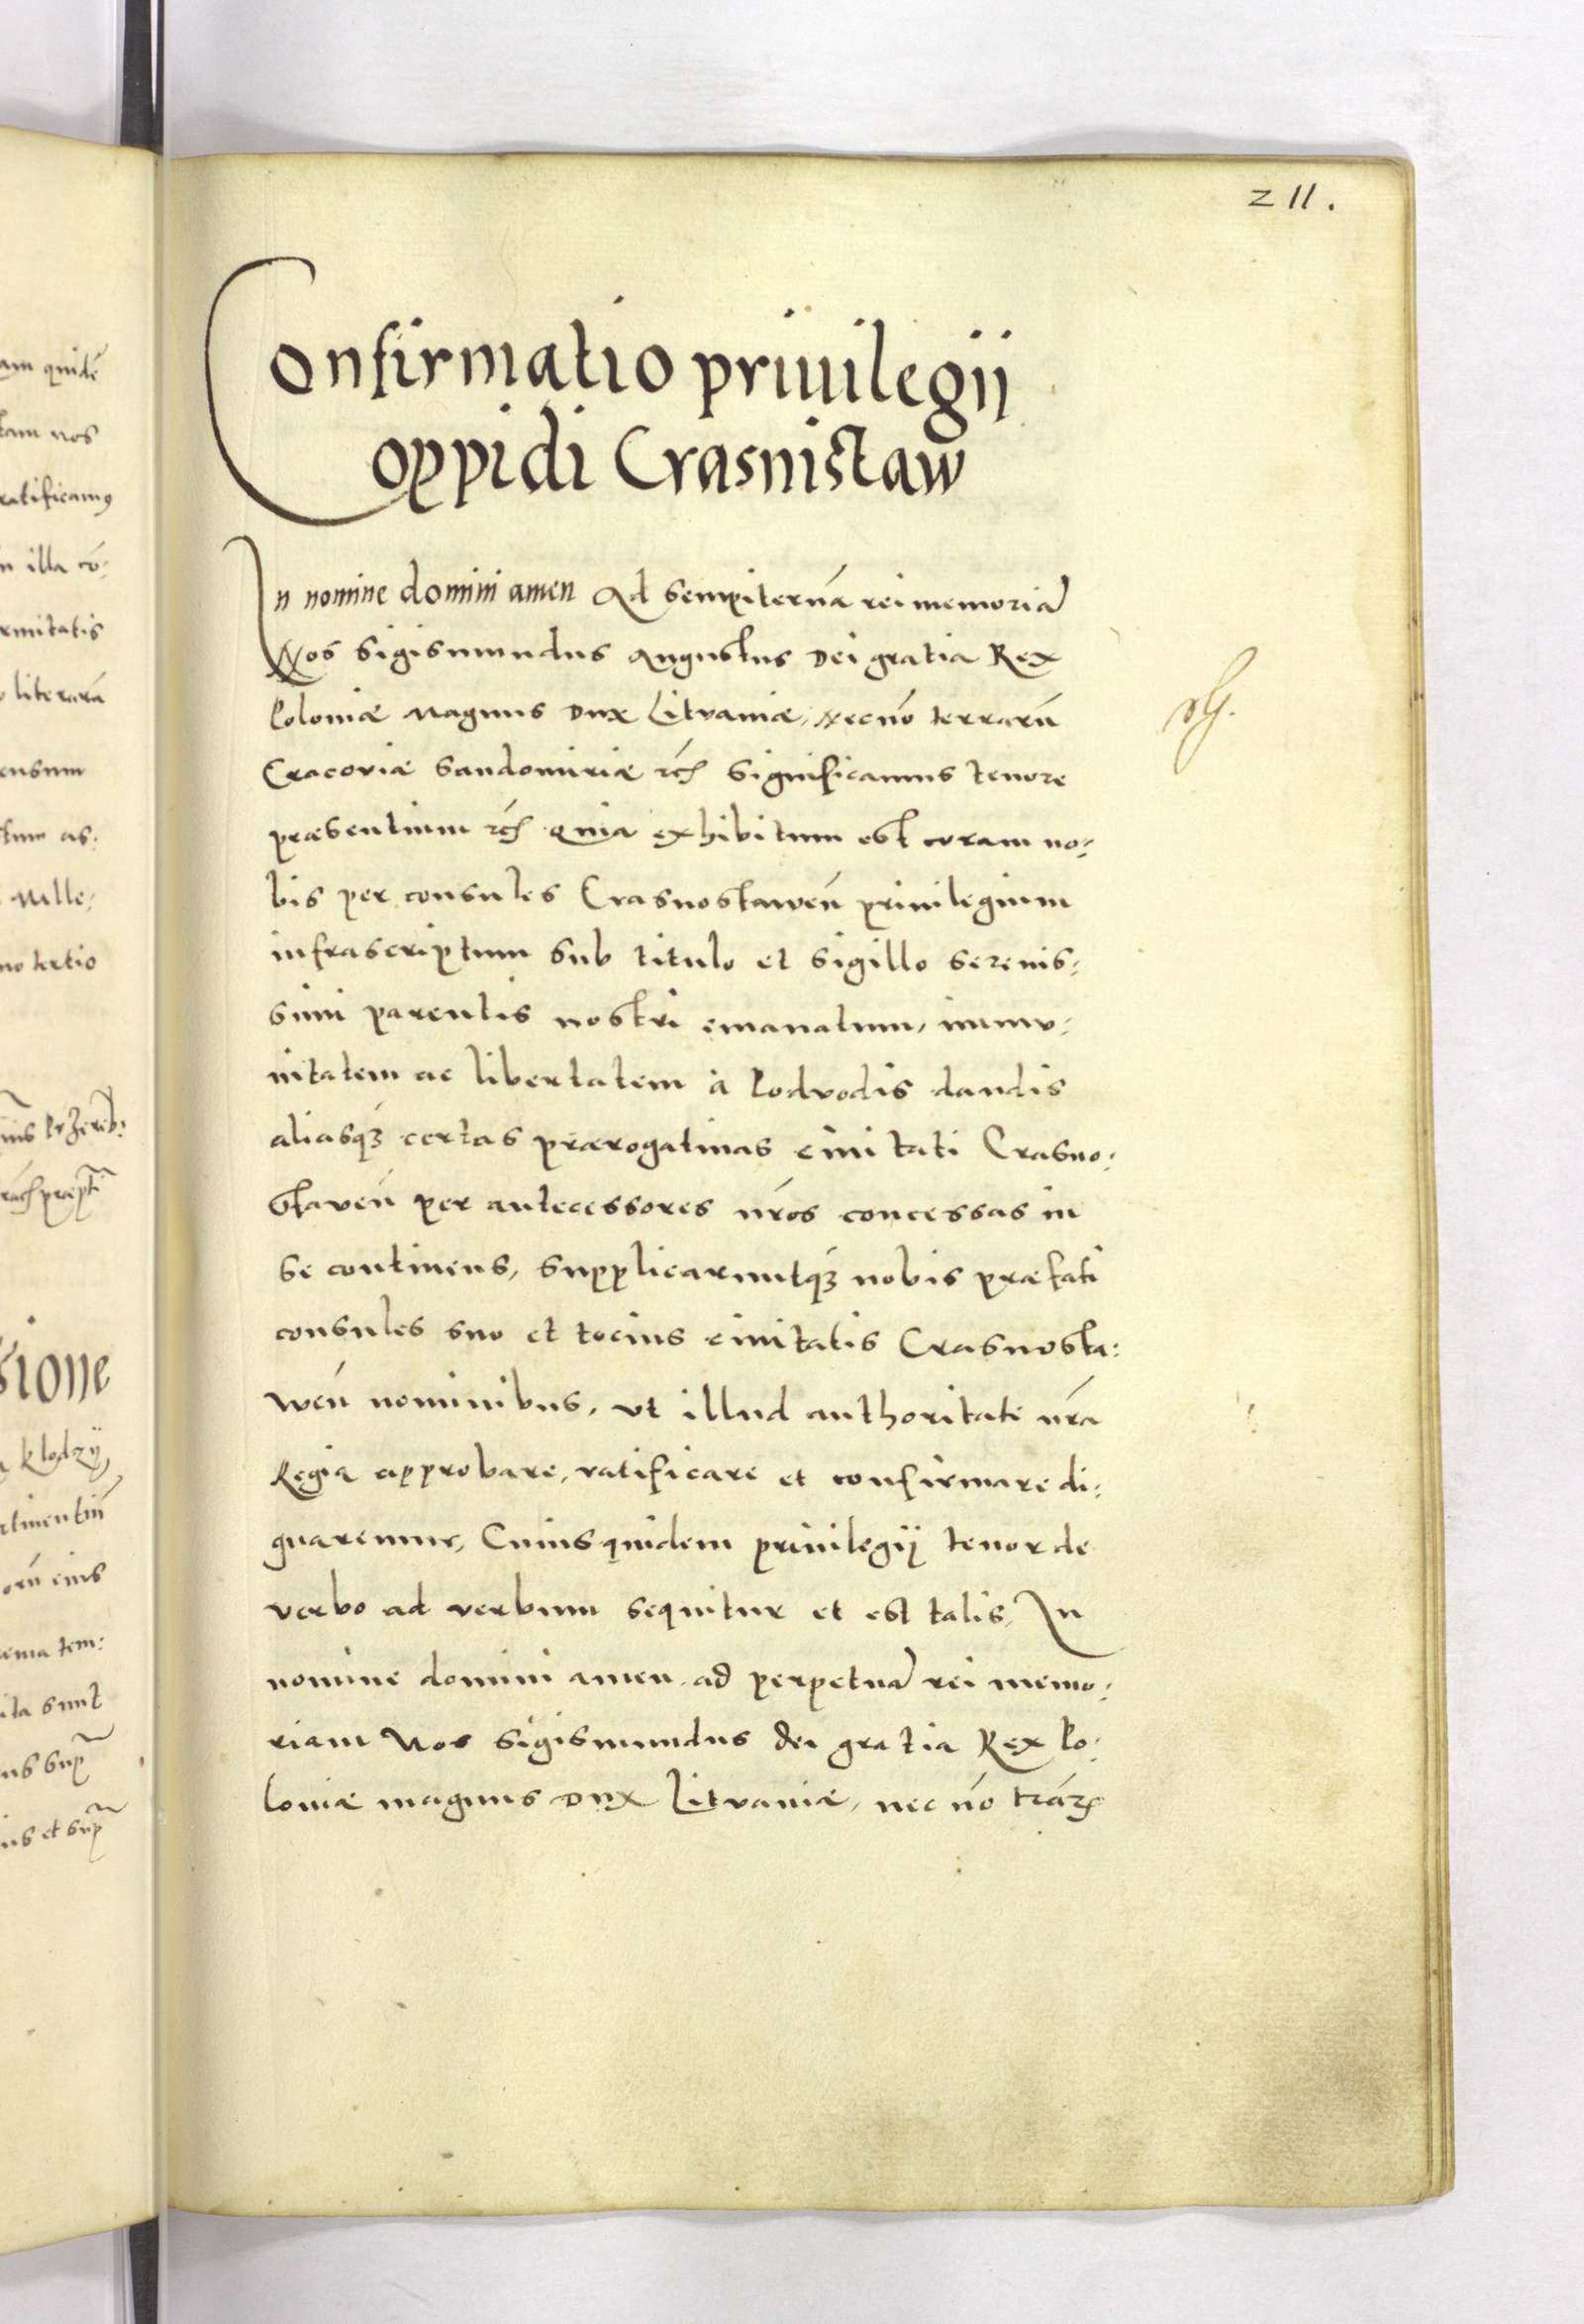 211.
Confirmatio priuilegij
oppidi Crasnistaw
In nomine domini amen Ad sempiternã rei memoriã
Nos Sigismundus Augustus Dei gratia Rex
Poloniæ Magnus Dux Litvaniæ, Necnõ terrarũ
Cracoviæ Sandomiriæ etc̃ Significamus tenore
præsentium etc̃ quia exhibitum est coram no:
bis per consules Crasnostaweñ priuilegium
infrascriptum sub titulo et sigillo serenis:
simi parentis nostri emanatum, immu:
nitatem ac libertatem à Podvodis dandis
aliasq́ꝫ certas prærogatiuas ciuitati Crasno:
staveñ per antecessores nr̃os concessas in
se continens, supplicaruntq́ꝫ nobis præfati
consules suo et tocius ciuitatis Crasnosta:
weñ nominibus, vt illud authoritate nr̃a
Regia approbare, ratificare et confirmare di:
gnaremur, Cuius quidem priuilegij tenor de
verbo ad verbum sequitur et est talis, In
nomine domini amen ad perpetuã rei memo:
riam Nos Sigismundus dei gratia Rex Po:
loniæ magnus Dux Litvaniæ, nec nõ trãrꝫ
am quidẽ
tam nos
ratificamꝰ
illa cõ:
rmitatis
literarã
ensum
tum as:
Mille:
no tertio
sione
klodzij
rtinentiũ
orũ eius
ita sunt